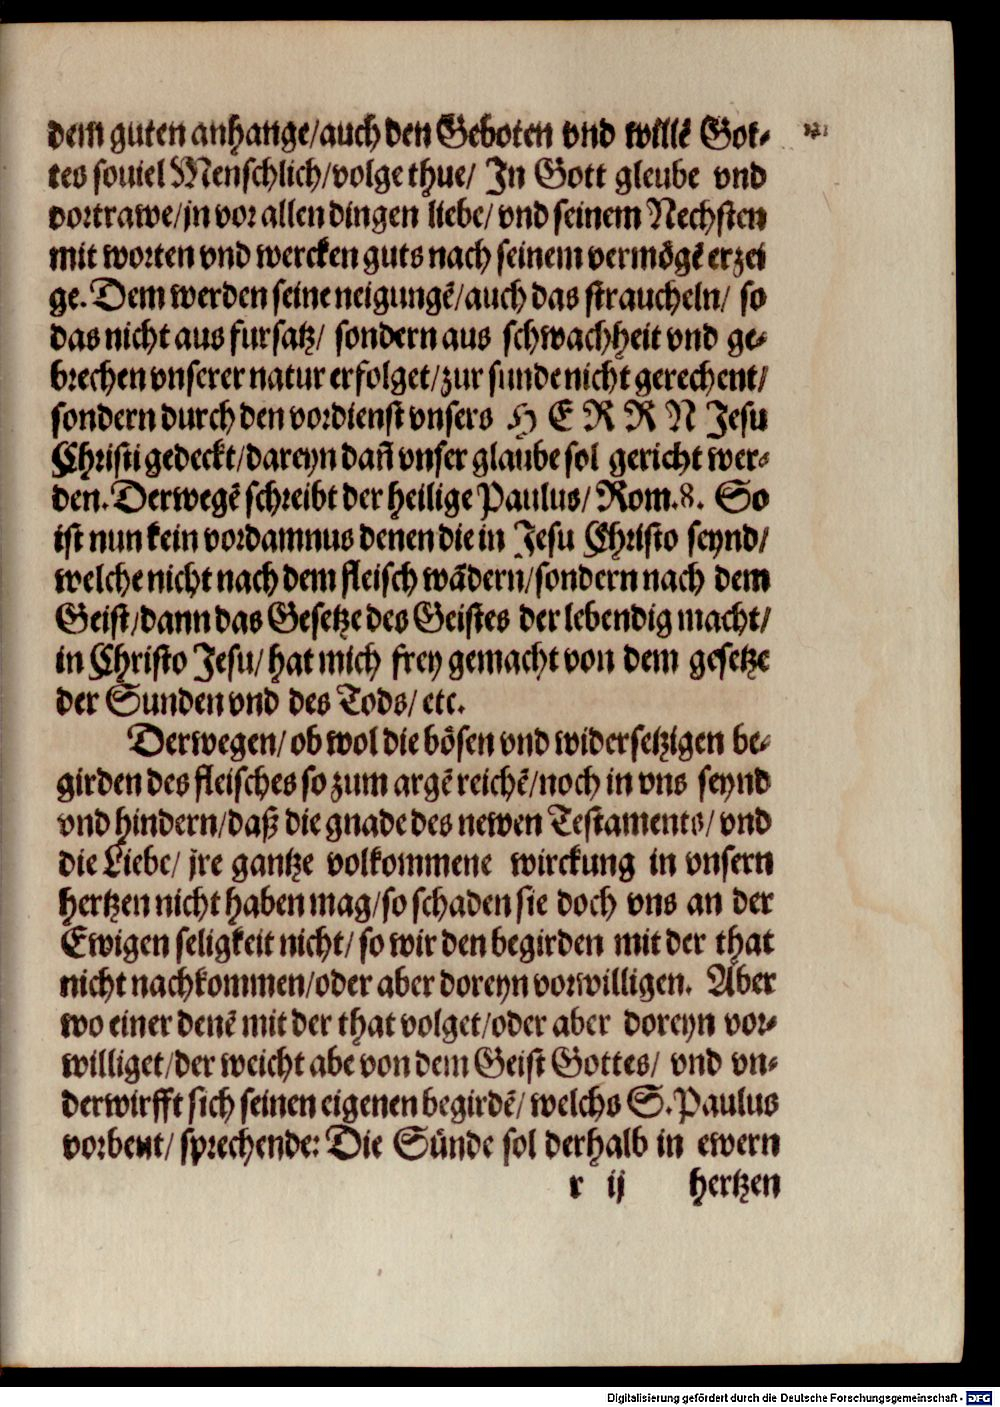 dem guten anhange/auch den Geboten vnd willē Got-
tes souiel Menschlich/volge thue/ In Gott gleube vnd
vortrawe/jn vor allen dingen liebe/ vnd seinem Nechsten
mit worten vnd wercken guts nach seinem vermögē erzei
ge. Dem werden seine neigungē/auch das straucheln/ so
das nicht aus fursatz/ sondern aus schwachheit vnd ge-
brechen vnserer natur erfolget/zur sunde nicht gerechent/
sondern durch den vordienst vnsers H E R R N Jesu
Christi gedeckt/dareyn dañ vnser glaube sol gericht wer-
den. Derwegē schreibt der heilige Paulus/ Rom.8. So
ist nun kein vordamnus denen die in Jesu Christo seynd/
welche nicht nach dem fleisch wādern/sondern nach dem
Geist/dann das Gesetze des Geistes der lebendig macht/
in Christo Jesu/ hat mich frey gemacht von dem gesetze
der Sunden vnd des Tods/ etc.
Derwegen/ ob wol die bösen vnd widersetzigen be-
girden des fleisches so zum argē reichē/noch in vns seynd
vnd hindern/daß die gnade des newen Testaments/ vnd
die Liebe/ jre gantze volkommene wirckung in vnsern
hertzen nicht haben mag/so schaden sie doch vns an der
Ewigen seligkeit nicht/ so wir den begirden mit der that
nicht nachkommen/oder aber doreyn vorwilligen. Aber
wo einer denē mit der that volget/oder aber doreyn vor-
williget/der weicht abe von dem Geist Gottes/ vnd vn-
derwirfft sich seinen eigenen begirdē/ welchs S. Paulus
vorbeut/ sprechende: Die Sünde sol derhalb in ewern
r ij hertzen
Digitalisierung gefördert durch die Deutsche Forschungsgemeinschaft - DFG